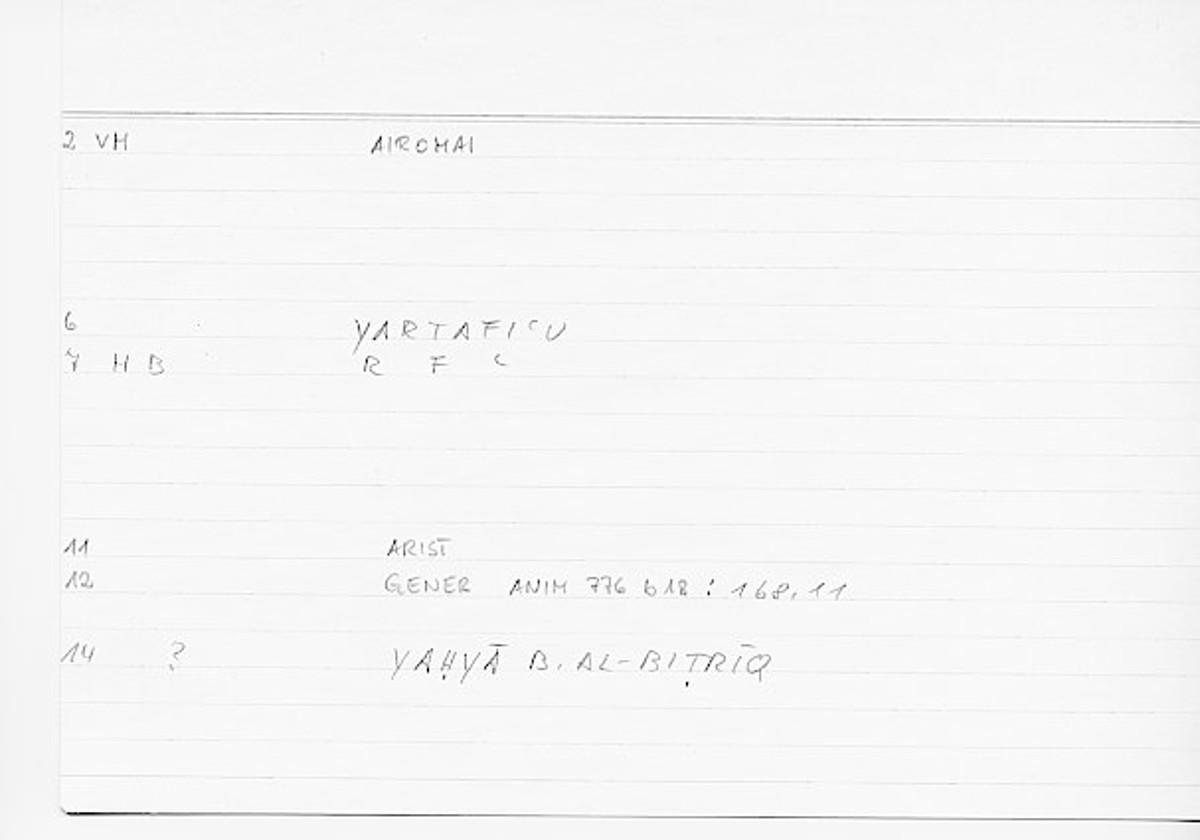 2 VH AIROMAI
6 YARTAFIʿU
7 H B R F ʿ
11 ARIST
12 GENER ANIM 776 b 18 : 168,11
14 ? YAḤYĀ B. AL-BIṬRĪQ